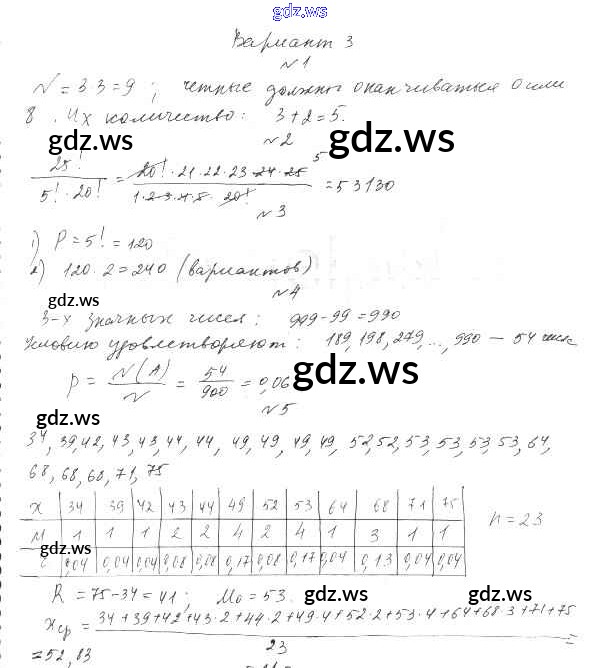 gdz.ws
Вариант 3
№1
N = 3·3 = 9 ; четные должны оканчиваться 0 или
8 . Их количество: 3+2=5.
gdz.ws gdz.ws
№2
25! / 5!·20! = 20!·21·22·23·24·25 / 1·2·3·4·5·20! = 53130
5
№3
1) P = 5! = 120
2) 120·2 = 240 (вариантов)
№4
gdz.ws
3-х значных чисел: 999-99=990
Условию удовлетворяют: 189, 198, 279, ..., 990 — 54 числ
p = N(A) / N = 54 / 900 = 0,06
gdz.ws
№5
gdz.ws
34, 39, 42, 43, 43, 44, 44, 49, 49, 49, 49, 52, 52, 53, 53, 53, 53, 64,
68, 68, 68, 71, 75
X 34 39 42 43 44 49 52 53 64 68 71 75
M 1 1 1 2 2 4 2 4 1 3 1 1 n=23
gdz.ws
0,04 0,04 0,04 0,08 0,08 0,17 0,08 0,17 0,04 0,13 0,04 0,04
R = 75-34=41; Mo = 53.
gdz.ws gdz.ws
xср = 34+39+42+43·2+44·2+49·4+52·2+53·4+64+68·3+71+75
23
=52,83